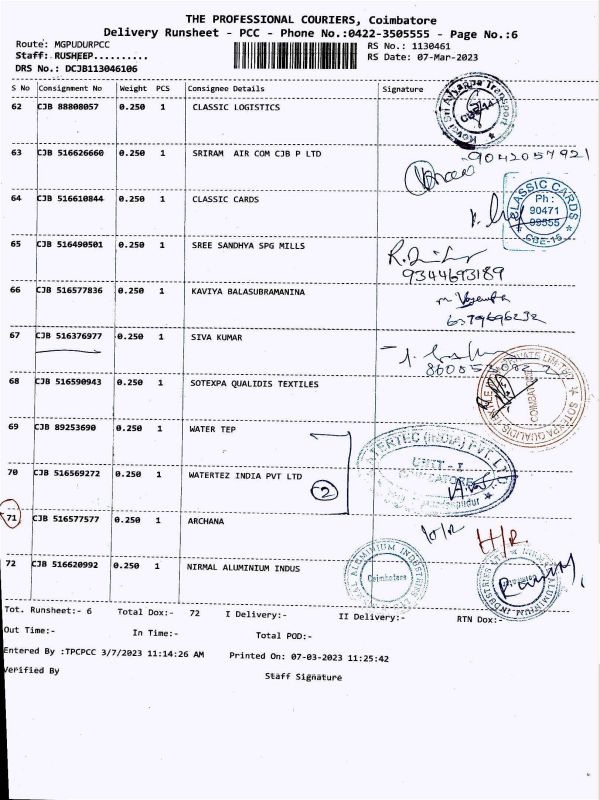 THE PROFESSIONAL COURIERS, Coimbatore
Delivery Runsheet - PCC - Phone No.:0422-3505555 - Page No.:6
Route: MGPUDURPCC
RS No.: 1130461
Staff: RUSHEEP..........
RS Date: 07-Mar-2023
DRS No.: DCJB113046106
S No Consignment No Weight PCS Consignee Details Signature
62 CJB 88808057 0.250 1 CLASSIC LOGISTICS
Kovai Sri Ayyappa Transport
63 CJB 516626660 0.250 1 SRIRAM AIR COM CJB P LTD
9042057921
64 CJB 516610844 0.250 1 CLASSIC CARDS
CLASSIC CARDS
Ph :
90471
99555
CBE-15
65 CJB 516490501 0.250 1 SREE SANDHYA SPG MILLS
9344693189
66 CJB 516577836 0.250 1 KAVIYA BALASUBRAMANINA
6379696232
67 CJB 516376977 0.250 1 SIVA KUMAR
68 CJB 516590943 0.250 1 SOTEXPA QUALIDIS TEXTILES
69 CJB 89253690 0.250 1 WATER TEP
WATERTEC (INDIA) PVT LTD
UNIT - I
70 CJB 516569272 0.250 1 WATERTEZ INDIA PVT LTD
2
71 CJB 516577577 0.250 1 ARCHANA
H/R
72 CJB 516620992 0.250 1 NIRMAL ALUMINIUM INDUS
ALUMINIUM INDUSTRIES
Coimbatore
Tot. Runsheet:- 6 Total Dox:- 72 I Delivery:- II Delivery:- RTN Dox:-
Out Time:- In Time:- Total POD:-
Entered By :TPCPCC 3/7/2023 11:14:26 AM Printed On: 07-03-2023 11:25:42
Verified By
Staff Signature